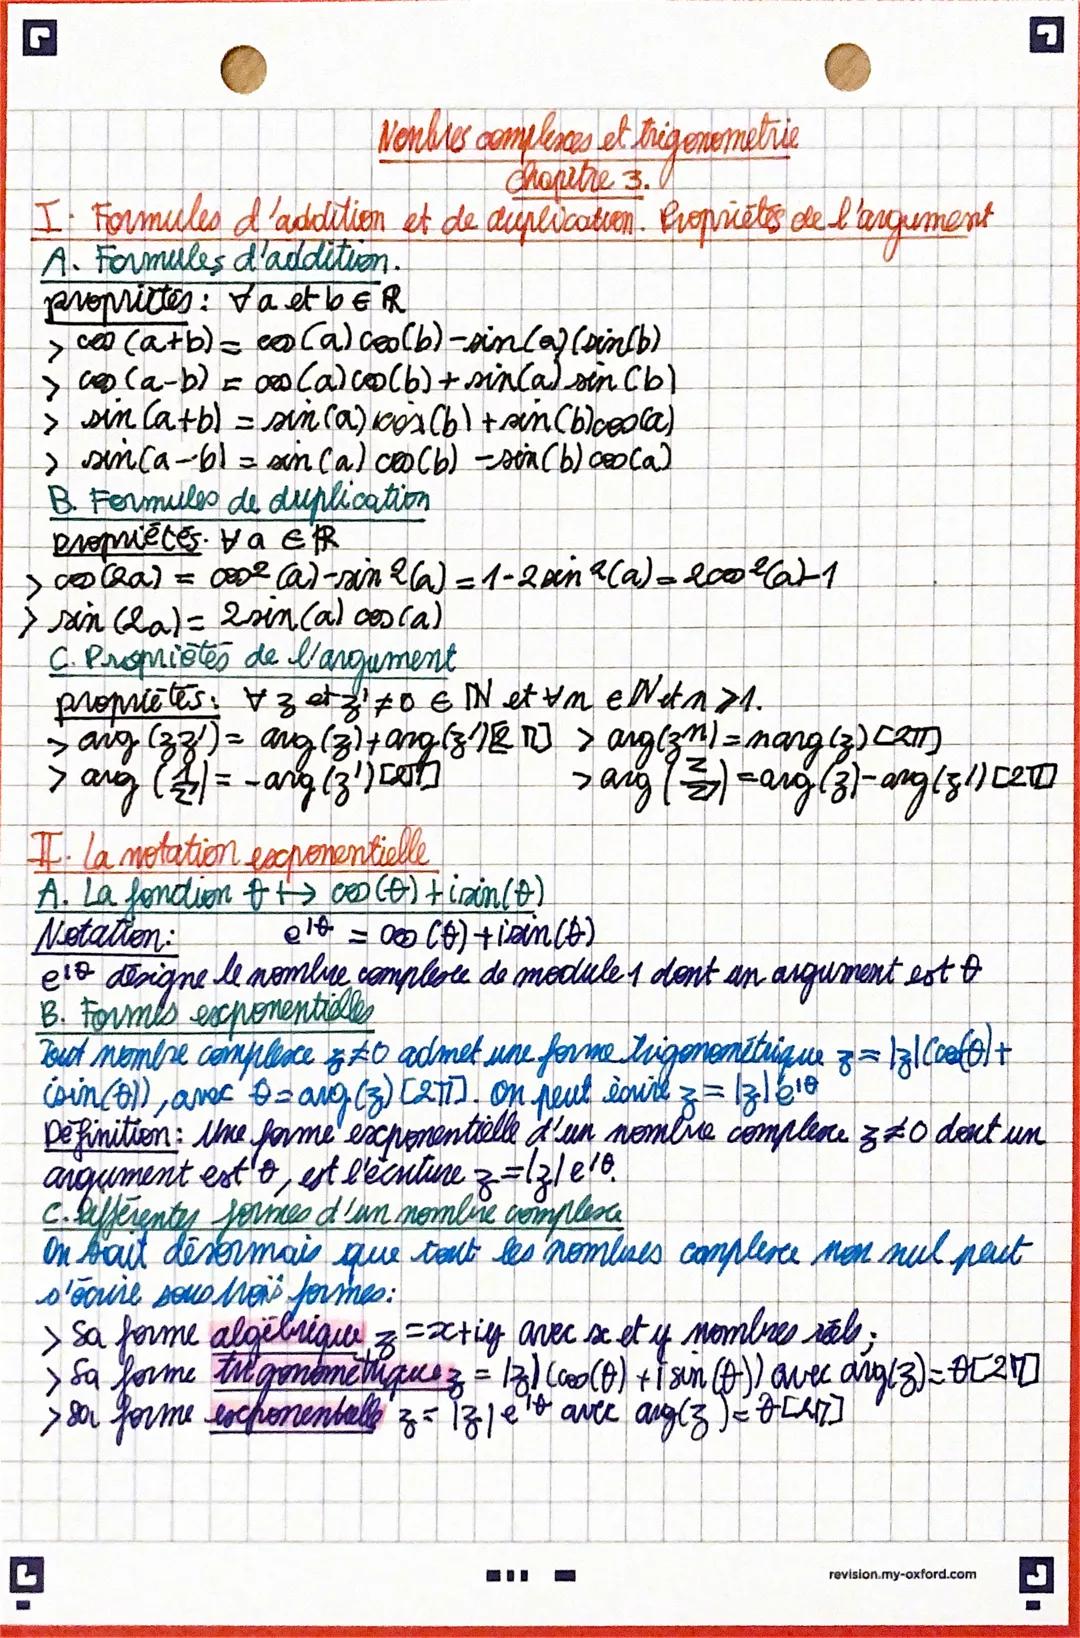 Nombres complexes et trigonometrie
chapitre 3.
I. Formules d'addition et de duplication. Propriétés de l'argument
A. Formules d'addition.
propriétés : ∀ a et b ∈ ℝ
> cos (a+b) = cos (a) cos(b) - sin(a) (sin(b)
> cos (a-b) = cos (a) cos(b) + sin(a) sin (b)
> sin (a+b) = sin(a) cos(b) + sin(b)cos(a)
> sin(a-b) = sin(a) cos(b) - sin(b) cos(a)
B. Formules de duplication
propriétés. ∀ a ∈ ℝ
> cos (2a) = cos² (a) - sin² (a) = 1 - 2 sin² (a) = 2cos² (a) - 1
> sin (2a) = 2sin(a) cos(a)
C. Propriétés de l'argument
propriétés : ∀ z et z' ≠ 0 ∈ ℕ et ∀ n ∈ ℕ et n ⩾ 1.
> arg (zz') = arg(z) + arg(z') [2π] > arg(zⁿ) = narg(z) [2π]
> arg (1/z') = -arg(z') [2π] > arg (z/z') = arg(z) - arg(z') [2π]
II. La notation exponentielle
A. La fonction θ ↦ cos(θ) + isin(θ)
Notation : e^iθ = cos (θ) + isin(θ)
e^iθ désigne le nombre complexe de module 1 dont un argument est θ
B. Formes exponentielles
Tout nombre complexe z ≠ 0 admet une forme trigonométrique z = |z| (cos(θ) +
isin(θ)), avec θ = arg(z) [2π]. On peut écrire z = |z| e^iθ
Définition : Une forme exponentielle d'un nombre complexe z ≠ 0 dont un
argument est θ, est l'écriture z = |z| e^iθ.
C. Différentes formes d'un nombre complexe
On sait désormais que tout les nombres complexe non nul peut
s'écrire sous trois formes :
> Sa forme algébrique z = x+iy avec x et y nombres réels ;
> Sa forme trigonométrique z = |z| (cos(θ) + i sin(θ)) avec arg(z) = θ [2π]
> Sa forme exponentielle z = |z| e^iθ avec arg(z) = θ [2π]
revision.my-oxford.com